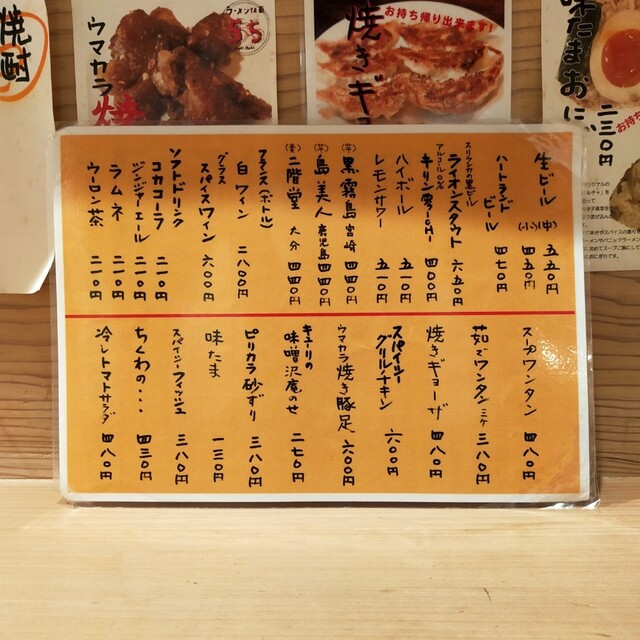 焼酎
ウマカラ
焼
55
お持ち帰り出来ます!
焼きギョ
味たまおに
二三〇円
生ビール (中) 五五〇円
(小) 四五〇円
ハートランドビール 四七〇円
スリランカの黒ビール
ライオンスタウト 六五〇円
アルコール0%
キリン零ICHI 四〇〇円
ハイボール 五一〇円
レモンサワー 五一〇円
(芋) 黒霧島 宮崎 四四〇円
(芋) 島美人 鹿児島 四四〇円
(麦) 二階堂 大分 四四〇円
フランス(ボトル)
白ワイン 二八〇〇円
グラス
スパイスワイン 六〇〇円
ソフトドリンク
コカコーラ 二一〇円
ジンジャーエール 二一〇円
ラムネ 二一〇円
ウーロン茶 二一〇円
スープワンタン 四八〇円
茹でワンタン 三ケ 三八〇円
焼きギョーザ 四八〇円
スパイシー
グリルチキン 六〇〇円
ウマカラ焼き豚足 六〇〇円
キュウリの
味噌沢庵のせ 二七〇円
ピリカラ砂ずり 三八〇円
味たま 一三〇円
スパイシーフィッシュ 三八〇円
ちくわの・・・ 四三〇円
冷しトマトサラダ 四八〇円